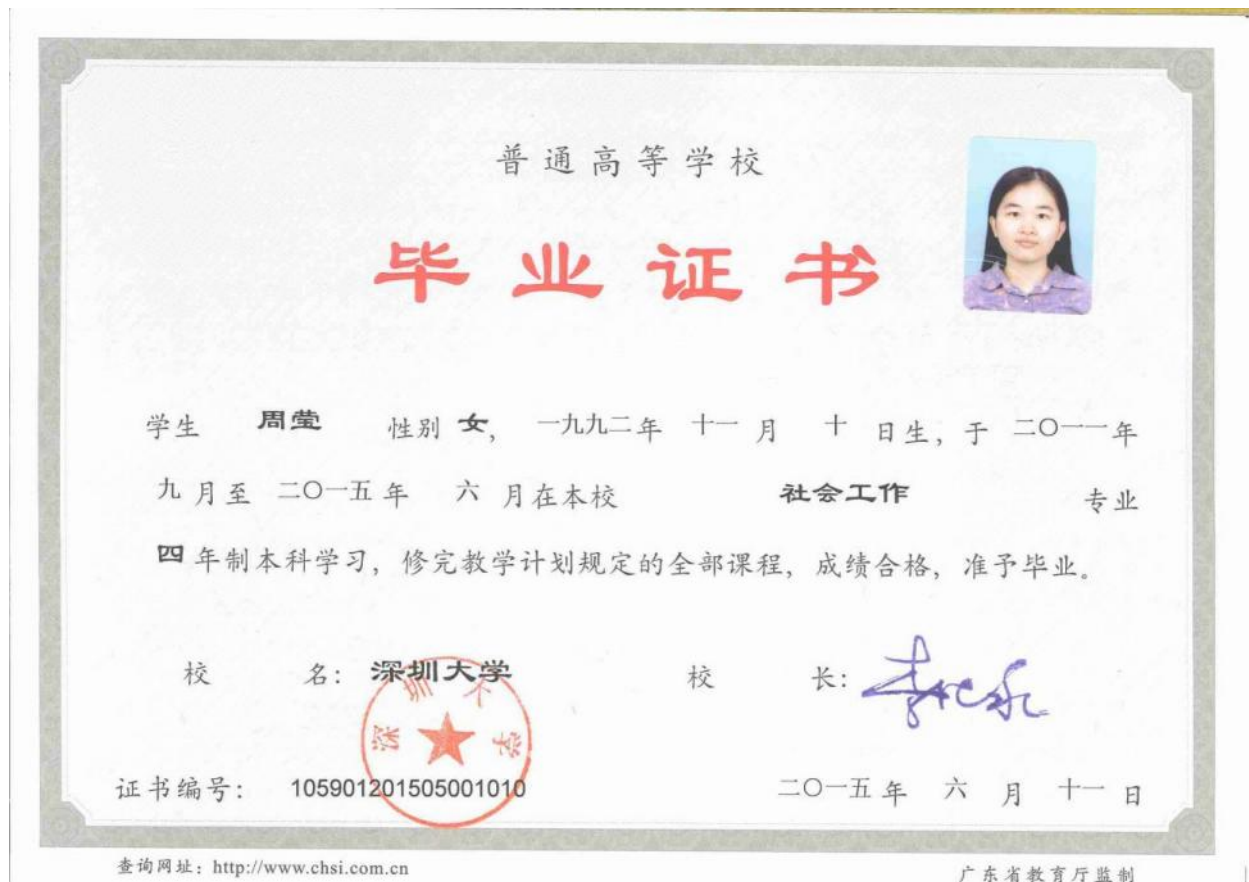 普通高等学校
毕业证书
学生 周莹 性别 女, 一九九二年 十一 月 十 日生, 于 二〇一一年
九 月至 二〇一五 年 六 月在本校 社会工作 专业
四 年制本科学习, 修完教学计划规定的全部课程, 成绩合格, 准予毕业。
校 名: 深圳大学 校 长:
深圳大学
证书编号: 105901201505001010 二〇一五 年 六 月 十一 日
查询网址: http://www.chsi.com.cn 广东省教育厅监制